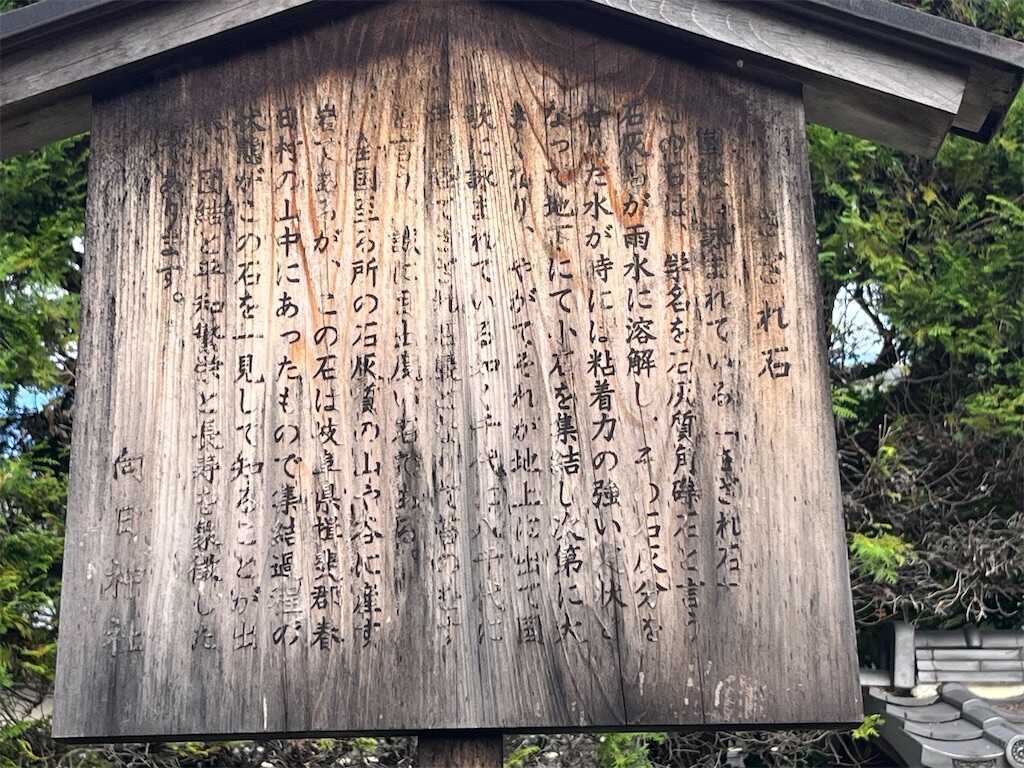 さざれ石
国歌に詠まれている「さざれ石」
この石は、学名を石灰質角礫石と言う
石灰石が雨水に溶解し、その石灰分を
含んだ水が時には粘着力の強い 状と
なって地下にて小石を集結し次第に大
きくなり、やがてそれが地上に出て国
歌に詠まれている如く千代に八千代に
さざれ石の巌となりて苔のむす
と言う、誠に目出度い石である
全国至る所の石灰質の山や谷に産す
岩であるが、この石は岐阜県揖斐郡春
日村の山中にあったもので集結過程の
状態がこの石を一見して知ることが出
団結と平和繁栄と長寿を象徴した
あります。
向日神社